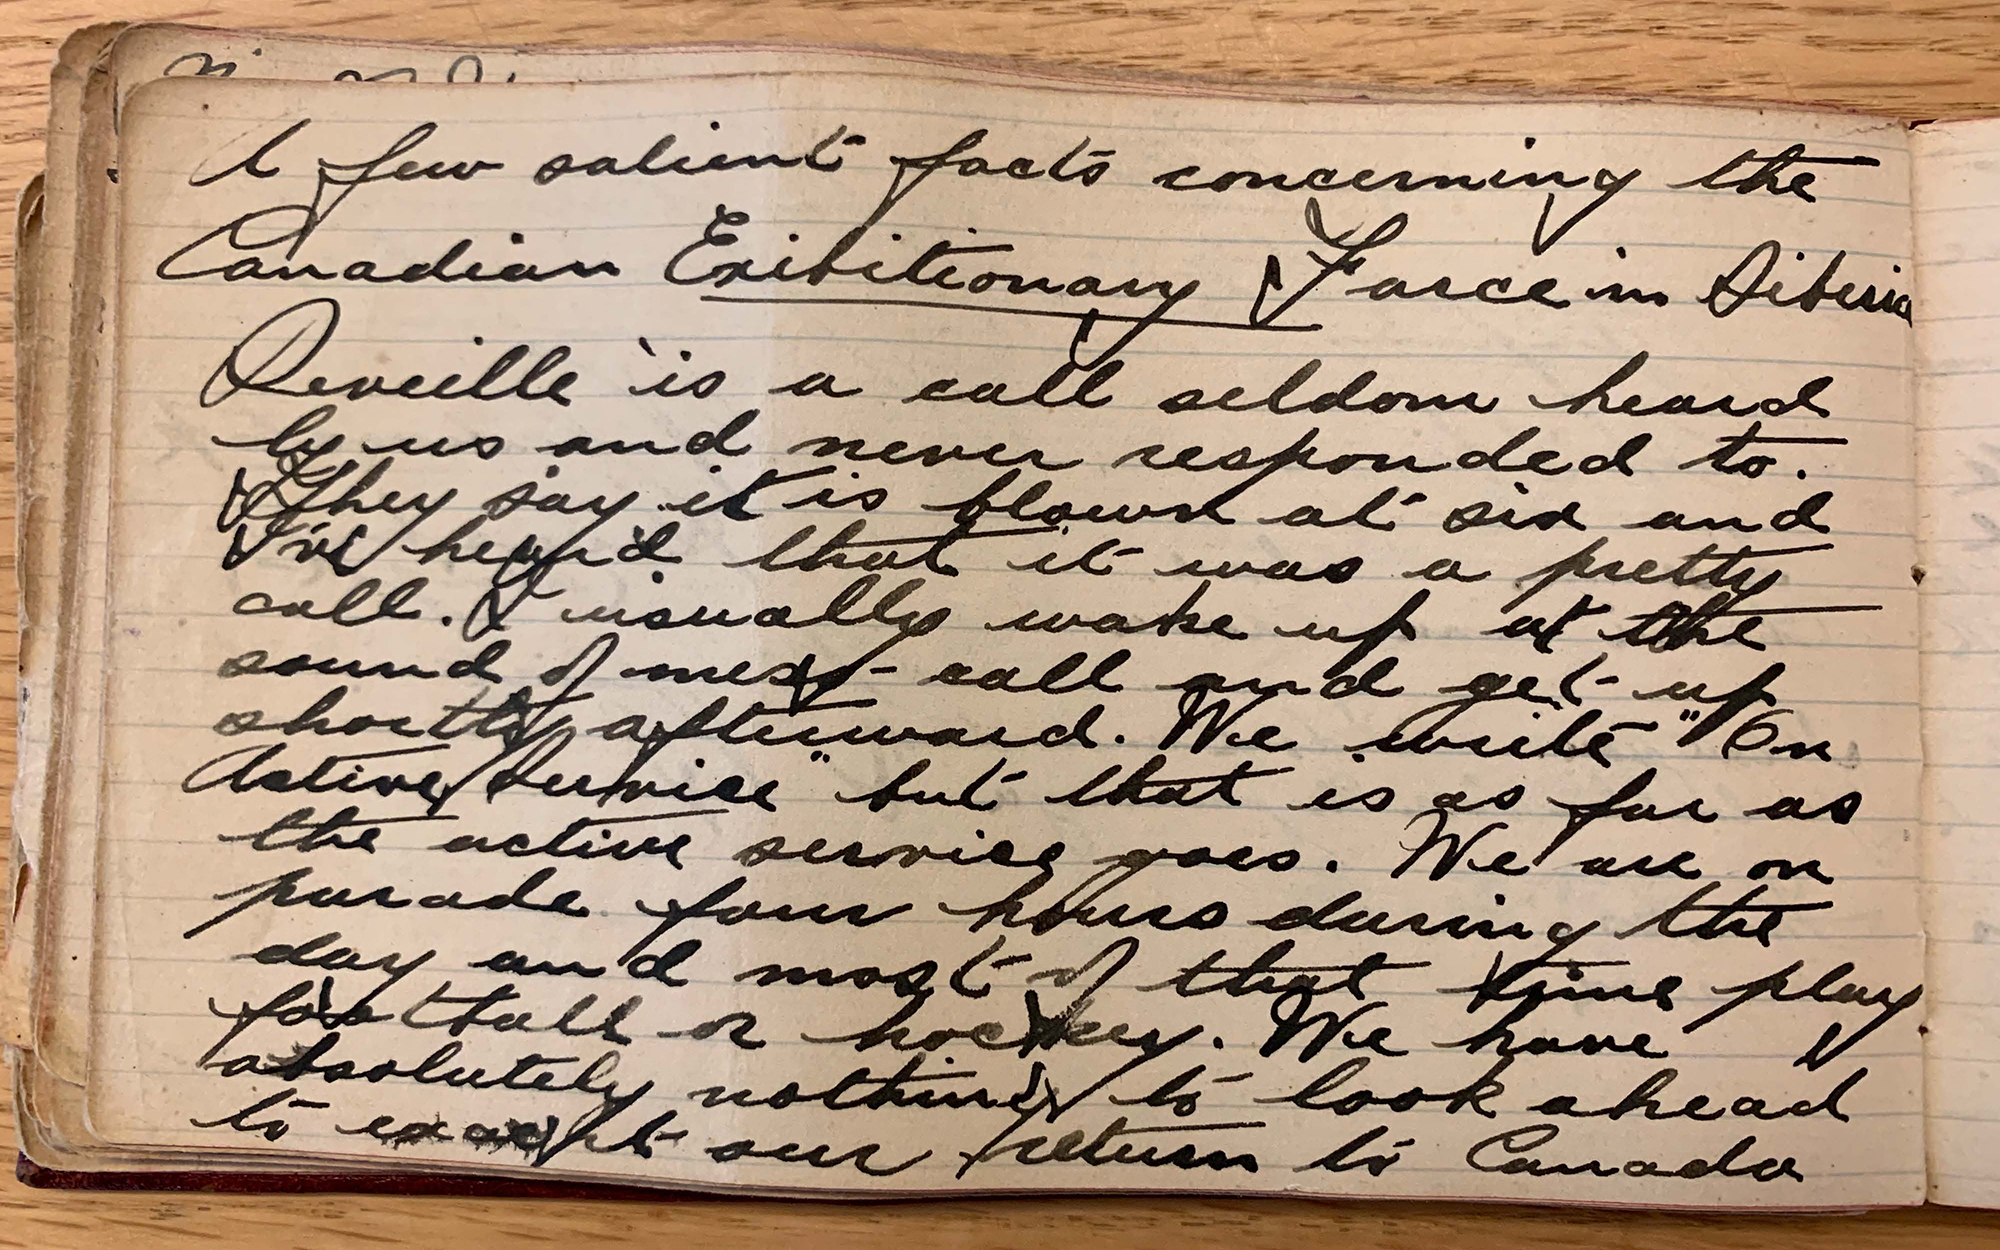 A few salient facts concerning the
Canadian Exibitionary Force in Siberia
Reveille is a call seldom heard
by us and never responded to.
They say it is blown at six and
I've heard that it was a pretty
call. I usually wake up at the
sound of mess-call and get up
shortly afterward. We write "On
Active Service" but that is as far as
the active service goes. We are on
parade four hours during the
day and most of that time play
football or hockey. We have
absolutely nothing to look ahead
to except our return to Canada